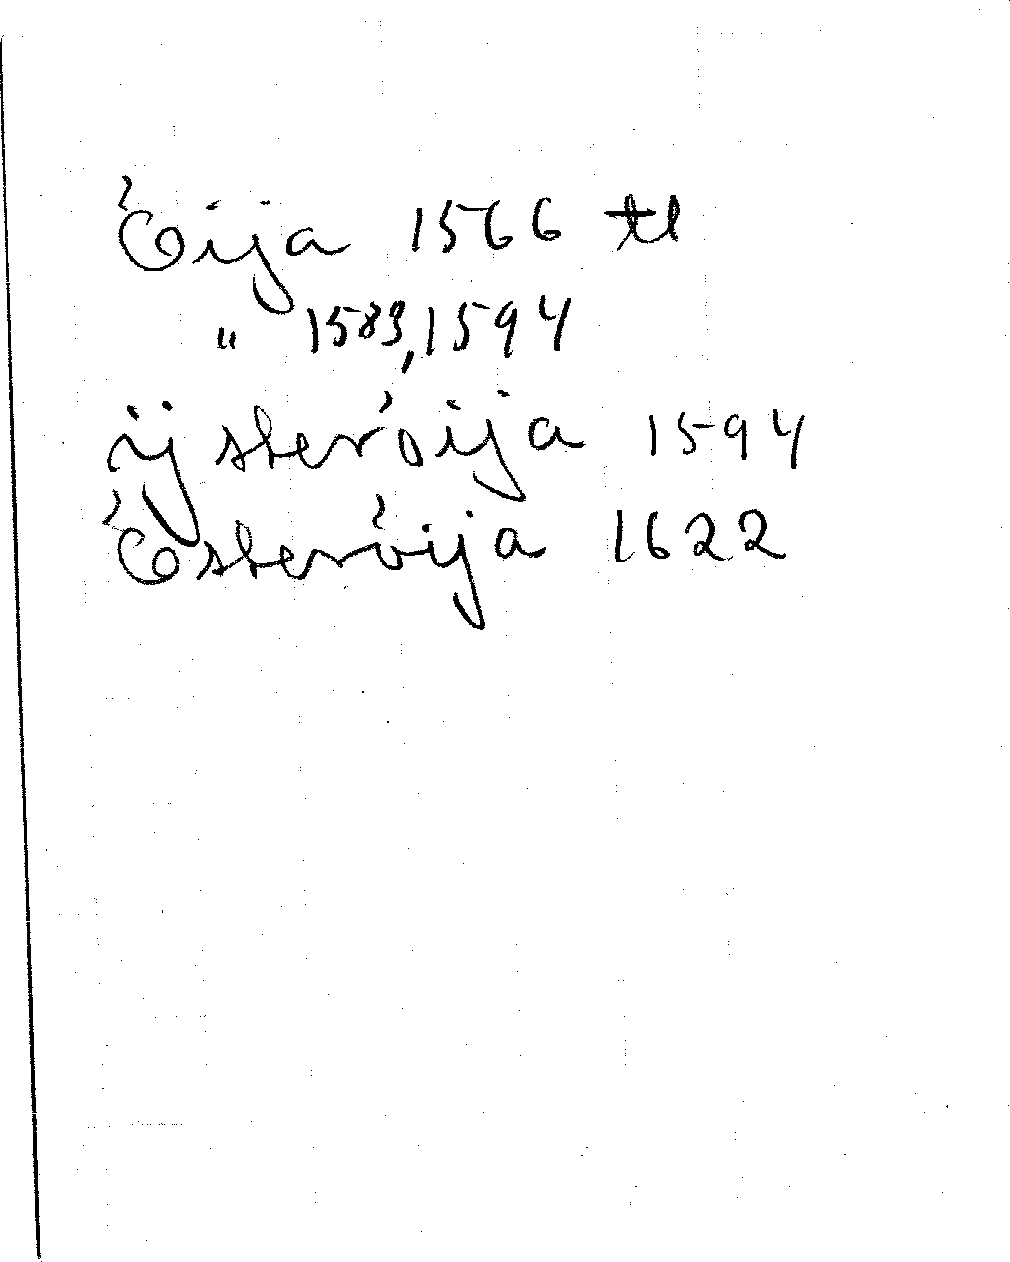 Öija 1566 tl
" 1583, 1594
ij steröija 1594
Österöija 1622